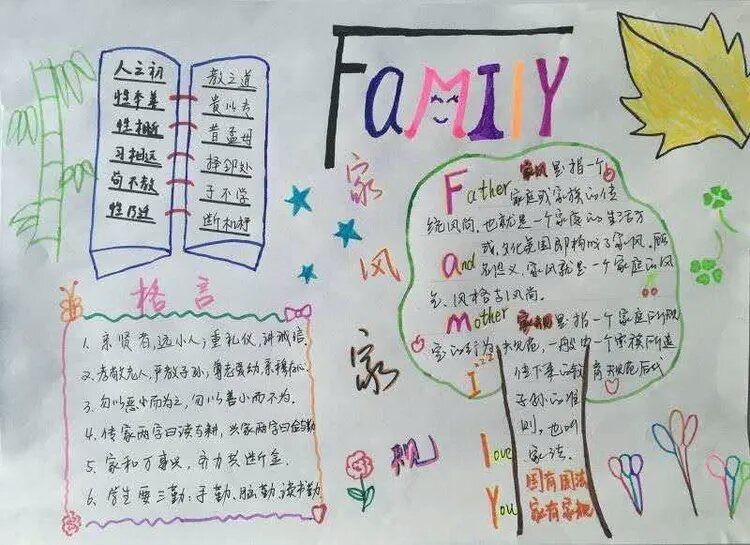 FAMIlY
人之初
性本善
性相近
习相远
苟不教
性乃迁
教之道
贵以专
昔孟母
择邻处
子不学
断机杼
格言
1. 亲贤者,远小人;重礼仪,讲诚信.
2. 孝敬老人,严教子孙;尊老爱幼,亲穆佳心
3. 勿以恶小而为之,勿以善小而不为.
4. 传家两字曰读与耕,兴家两字曰俭与勤
5. 家和万事兴,齐力共进金.
6. 学生要三勤:手勤、脑勤、读书勤
家风家规
Father 家风是指一个
家庭或家族的传
统风尚,也就是一个家庭的生活方
and 式,文化氛围即构成了家风,顾
名思义,家风就是一个家庭的风
气、风格与风尚。
Mother 家规是指一个家庭所规
定的行为规范,一般由一个家族所遗
I 传下来的教育规范后代
子孙的准
则,也叫
love 家法.
You 国有国法
家有家规